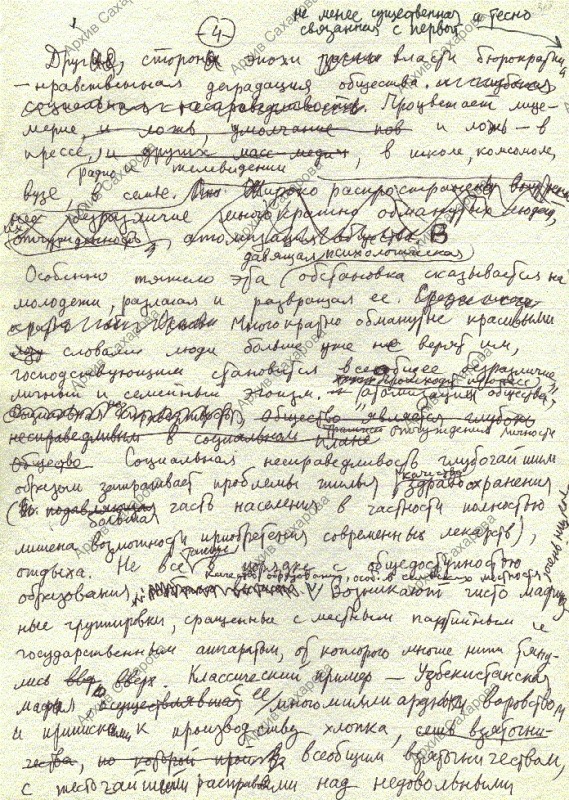 4
не менее существенная и тесно
связанная с первой
Другая сторона эпохи власти бюрократии,
— нравственная деградация общества. и глубокая
социальная несправедливость. Процветает лице-
мерие, и ложь, умолчание и ложь — в
прессе, и других масс медиа, в школе, комсомоле,
радио и телевидении
вузе, в семье. Широко распространено
безразличие многократно обманутых людей,
их отчужденность, атомизация общества. В
давящая психологическая
Особенно тяжело эта обстановка сказывается на
молодежи, разлагая и развращая ее.
Многократно обманутые красивыми
словами люди больше уже не верят им,
господствующим становится всеобщее безразличие,
происходит процесс
личный и семейный эгоизм. атомизации общества,
Общество является глубоко
несправедливым в социальном плане отчуждения личности
Общество Социальная несправедливость глубочайшим
качества
образом затрагивает проблемы жилья, здравоохранения
(подавляющая часть населения в частности полностью
большая
лишена возможности приобретения современных лекарств),
отдыха. Не все в порядке с общедоступностью
качество образования, особ. в сельских местность
образования, Возникают чисто мафиоз-
ные группировки, сращенные с местным партийным и
государственным аппаратом, от которого многие нити тяну-
лись вверх. Классический пример — Узбекистанская
мафия осуществлявшая ее многомиллиардным воровством
и приписками к производству хлопка, всеобщим взяточничеством,
с жесточайшими расправами над недовольными